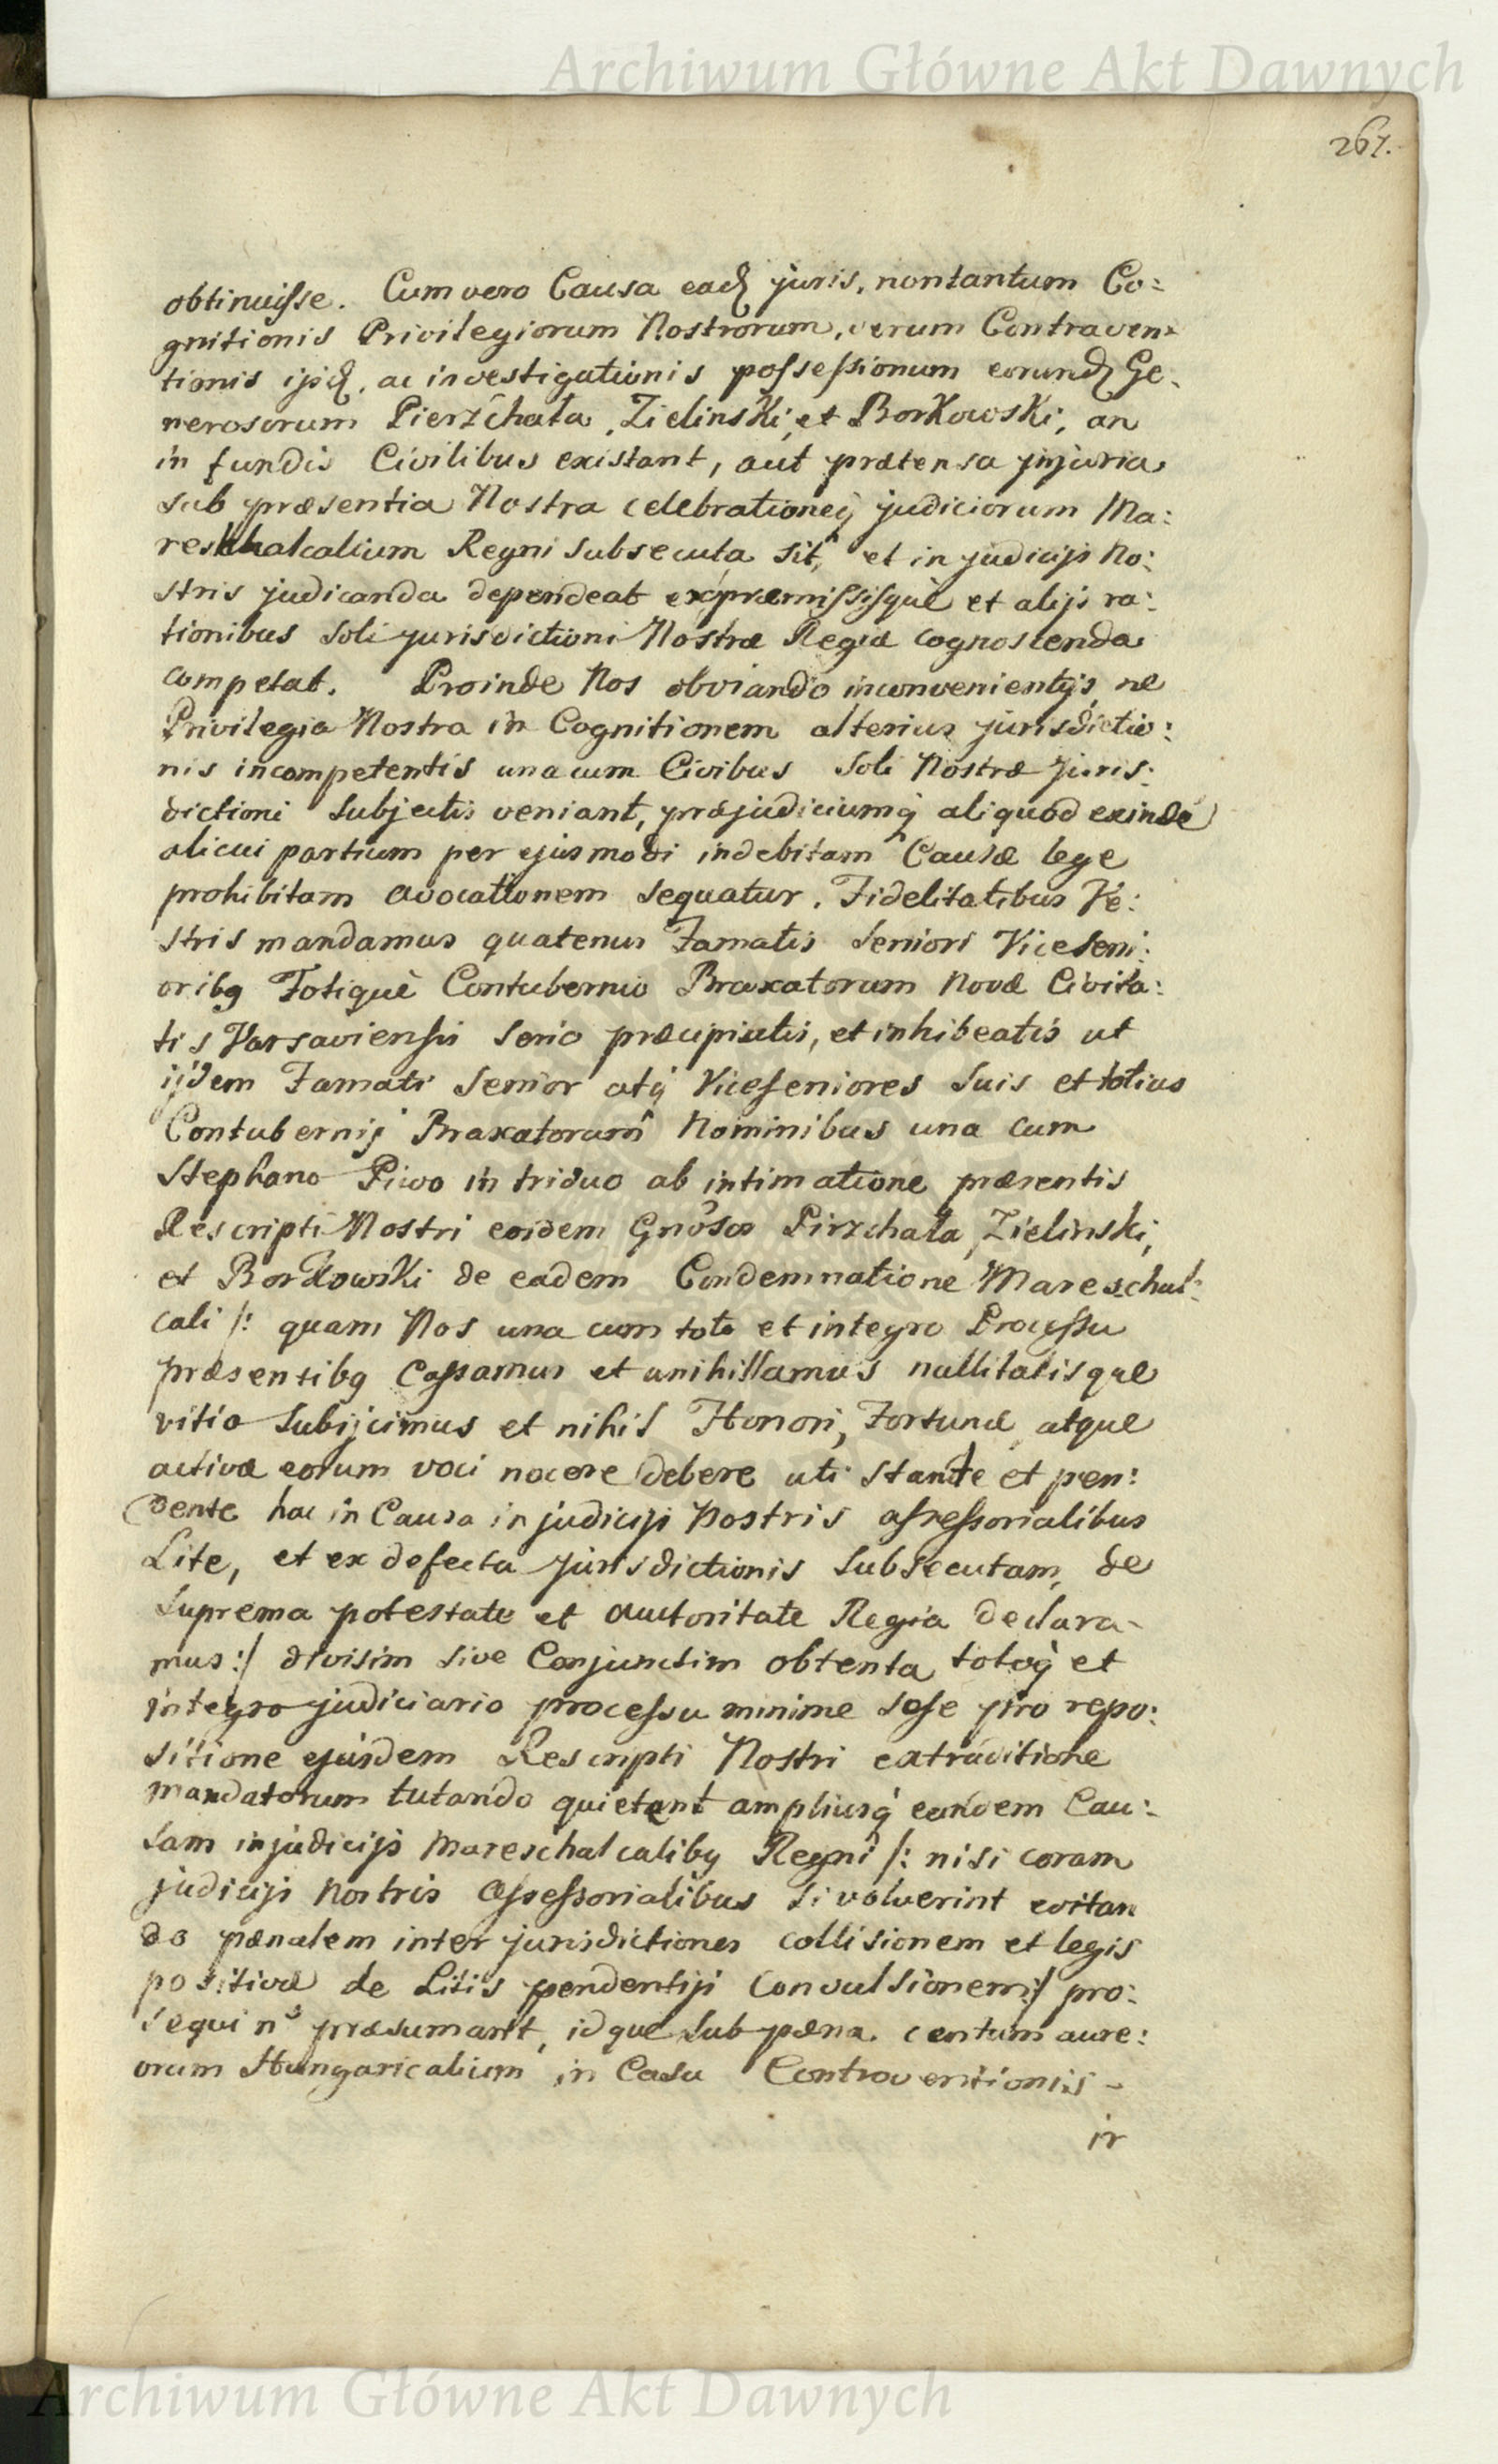 Archiwum Główne Akt Dawnych
267.
obtinuisse. Cum vero Causa eadɋ juris, nontantum Co:
gnitionis Privilegiorum Nostrorum, verum Contraven:
tionis ipsɋ, ac investigationis possessionum eorundɋ Ge:
nerosorum Pierzchała, Zielinski, et Borkowski, an
in fundis Civilibus existant, aut prætensa injuria
sub præsentia Nostra celebrationeq̀ judiciorum Ma:
reschalcalium Regni subsecuta sit, et in judicijs No:
stris judicanda dependeat ex præmissisquè et alijs ra:
tionibus soli jurisdictioni Nostræ Regiæ cognoscenda
competat. Proinde Nos obviando inconvenientijs, ne
Privilegia Nostra in Cognitionem alterius jurisdictio:
nis incompetentis una cum Civibus soli Nostræ juris:
dictioni subjectis veniant, præjudiciumq̀ aliquod exinde
alicui partium per ejusmodi indebitam Causæ lege
prohibitam avocationem sequatur. Fidelitatibus Ve:
stris mandamus quatenus Famatis Seniori Viceseni:
oribɋ Totiquè Contubernio Braxatorum Novæ Civita:
tis Varsaviensis serio præcipiatis, et inhibeatis ut
ijdem Famati Senior atq̀ Viceseniores suis et totius
Contubernij Braxatorum Nominibus una cum
Stephano Piwo in triduo ab intimatione præsentis
Rescripti Nostri eosdem Gnosos Pirzchała, Zielinski,
et Borkowski de eadem Condemnatione Mareschal:
cali /: quam Nos una cum toto et integro Processu
præsentibɋ Cassamus et anihillamus nullitatisque
vitio subijcimus et nihil Honori, Fortunæ, atque
activæ eorum voci nocere debere uti stante et pen:
dente hac in Causa in judicijs Nostris assessorialibus
Lite, et ex defectu jurisdictionis subsecutam, de
suprema potestate et auctoritate Regia declara-
mus :/ divisim sive Conjunctim obtenta totoq̀ et
integro judiciario processu minime sese pro repo:
sitione ejusdem Rescripti Nostri extraditione
mandatorum tutando quietent ampliusq̀ eandem Cau:
sam in judicijs Mareschalcalibɋ Regni /: nisi coram
judicijs Nostris Assessorialibus si voluerint evitan
do pænalem inter jurisdictiones collisionem et legis
positivæ de Litis pendentijs Convulsionem :/ pro:
sequi no præsumant, idque sub pæna centum aure:
orum Hungaricalium in Casu Contraventionis -
ir
Archiwum Główne Akt Dawnych